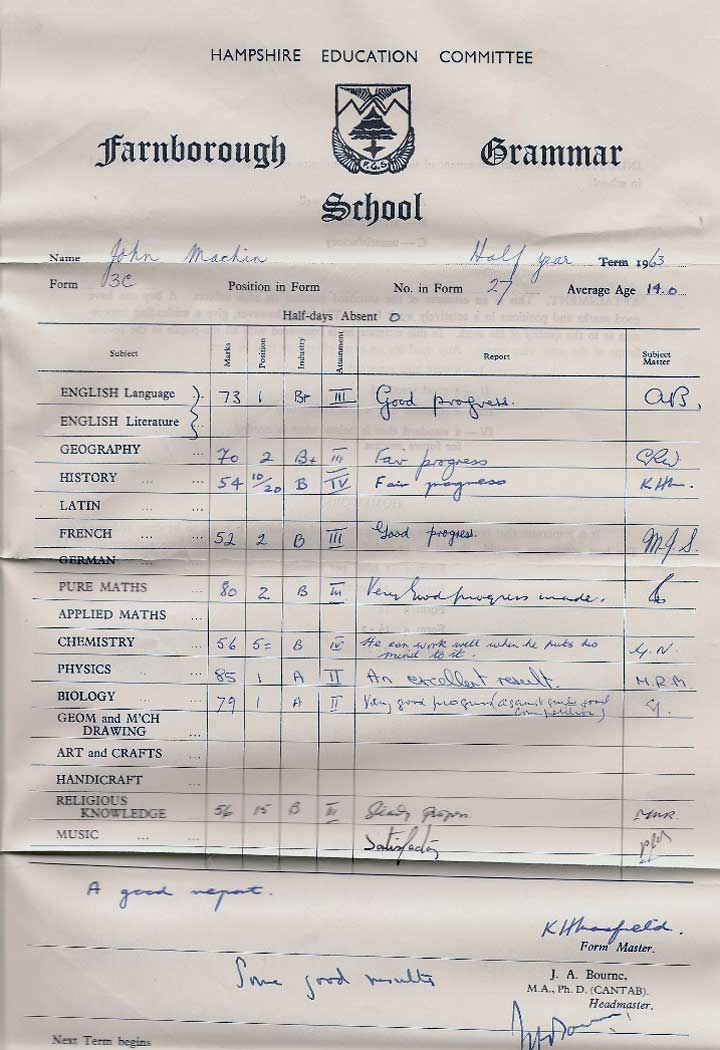 HAMPSHIRE EDUCATION COMMITTEE
Farnborough Grammar
F.G.S
School
Name John Machin Half year Term 1963
Form 3C Position in Form No. in Form 27 Average Age 14.0
Half-days Absent 0
Subject Marks Position Industry Attainment Report Subject Master
ENGLISH Language 73 1 B+ III Good progress. AB.
ENGLISH Literature
GEOGRAPHY 70 2 B+ III Fair progress
HISTORY 54 10/20 B IV Fair progress
LATIN
FRENCH 52 2 B III Good progress. M.J.S.
GERMAN
PURE MATHS 80 2 B III Very Good progress made.
APPLIED MATHS
CHEMISTRY 56 5= B IV He can work well when he puts his
mind to it. G.N.
PHYSICS 85 1 A II An excellent result. M.R.M.
BIOLOGY 79 1 A II Very good progress (against quite good
competition) G.
GEOM and M'CH
DRAWING
ART and CRAFTS
HANDICRAFT
RELIGIOUS
KNOWLEDGE 56 15 B III Steady progress.
MUSIC Satisfactory
A good report.
KHMansfield.
Form Master.
Some good results
J. A. Bourne,
M.A., Ph. D. (CANTAB).
Headmaster.
Next Term begins